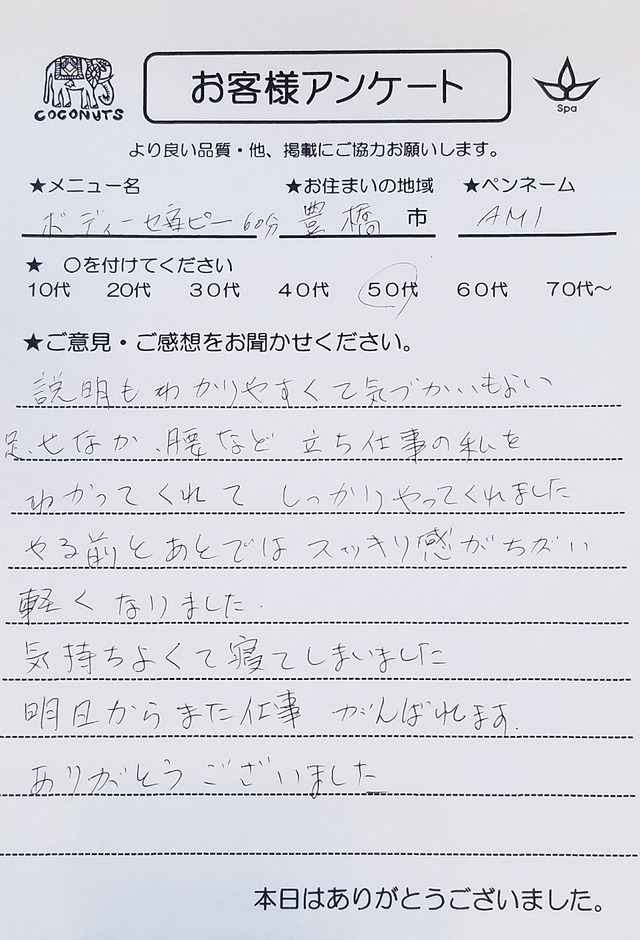 COCONUTS
お客様アンケート
Spa
より良い品質・他、掲載にご協力お願いします。
★メニュー名 ★お住まいの地域 ★ペンネーム
ボディーセラピー60分 豊橋 市 AMI
★ 〇を付けてください
10代 20代 30代 40代 50代 60代 70代～
★ご意見・ご感想をお聞かせください。
説明もわかりやすくて気づかいもよい
足、せなか、腰など 立ち仕事の私を
わかってくれて しっかりやってくれました
やる前とあとでは スッキリ感がちがい
軽くなりました.
気持ちよくて寝てしまいました
明日からまた仕事 がんばれます.
ありがとうございました
本日はありがとうございました。